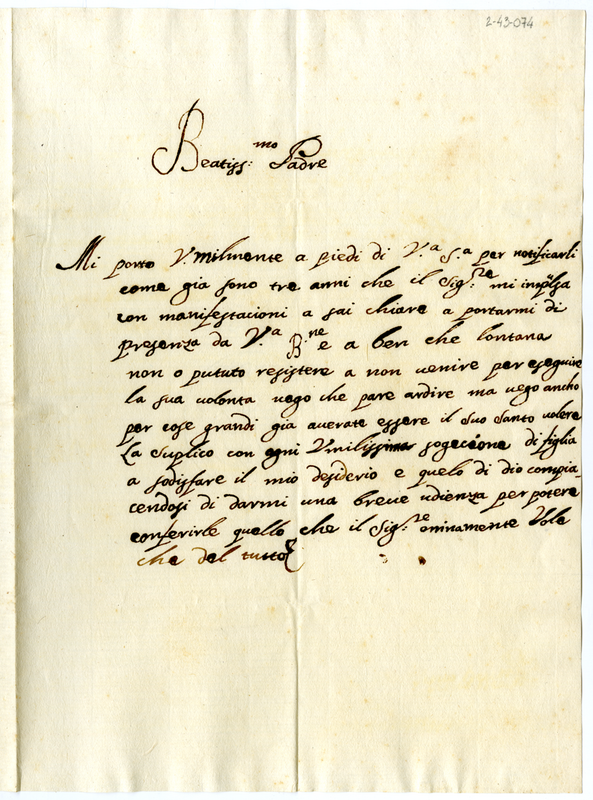 2-43-074
Beatiss:mo Padre
Mi porto V:milmente a piedi di V.a S.a per notificarli
come gia sono tre anni che il Sig:re mi impulsa
con manifestacioni a sai chiare a portarmi di
presenza da V.a B:ne e a ben che lontana
non o pututo resistere a non venire per eseguire
la sua volonta vego che pare ardire ma vego ancho
per cose grandi gia averate essere il Suo Santo volere
La Suplico con ogni Vmilissima sogecione di figlia
a sodisfare il mio desiderio e quelo di dio compia-
cendosi di darmi una breve udienza per potere
conferirle quello che il Sig:re oninamente Vole
che del tutto